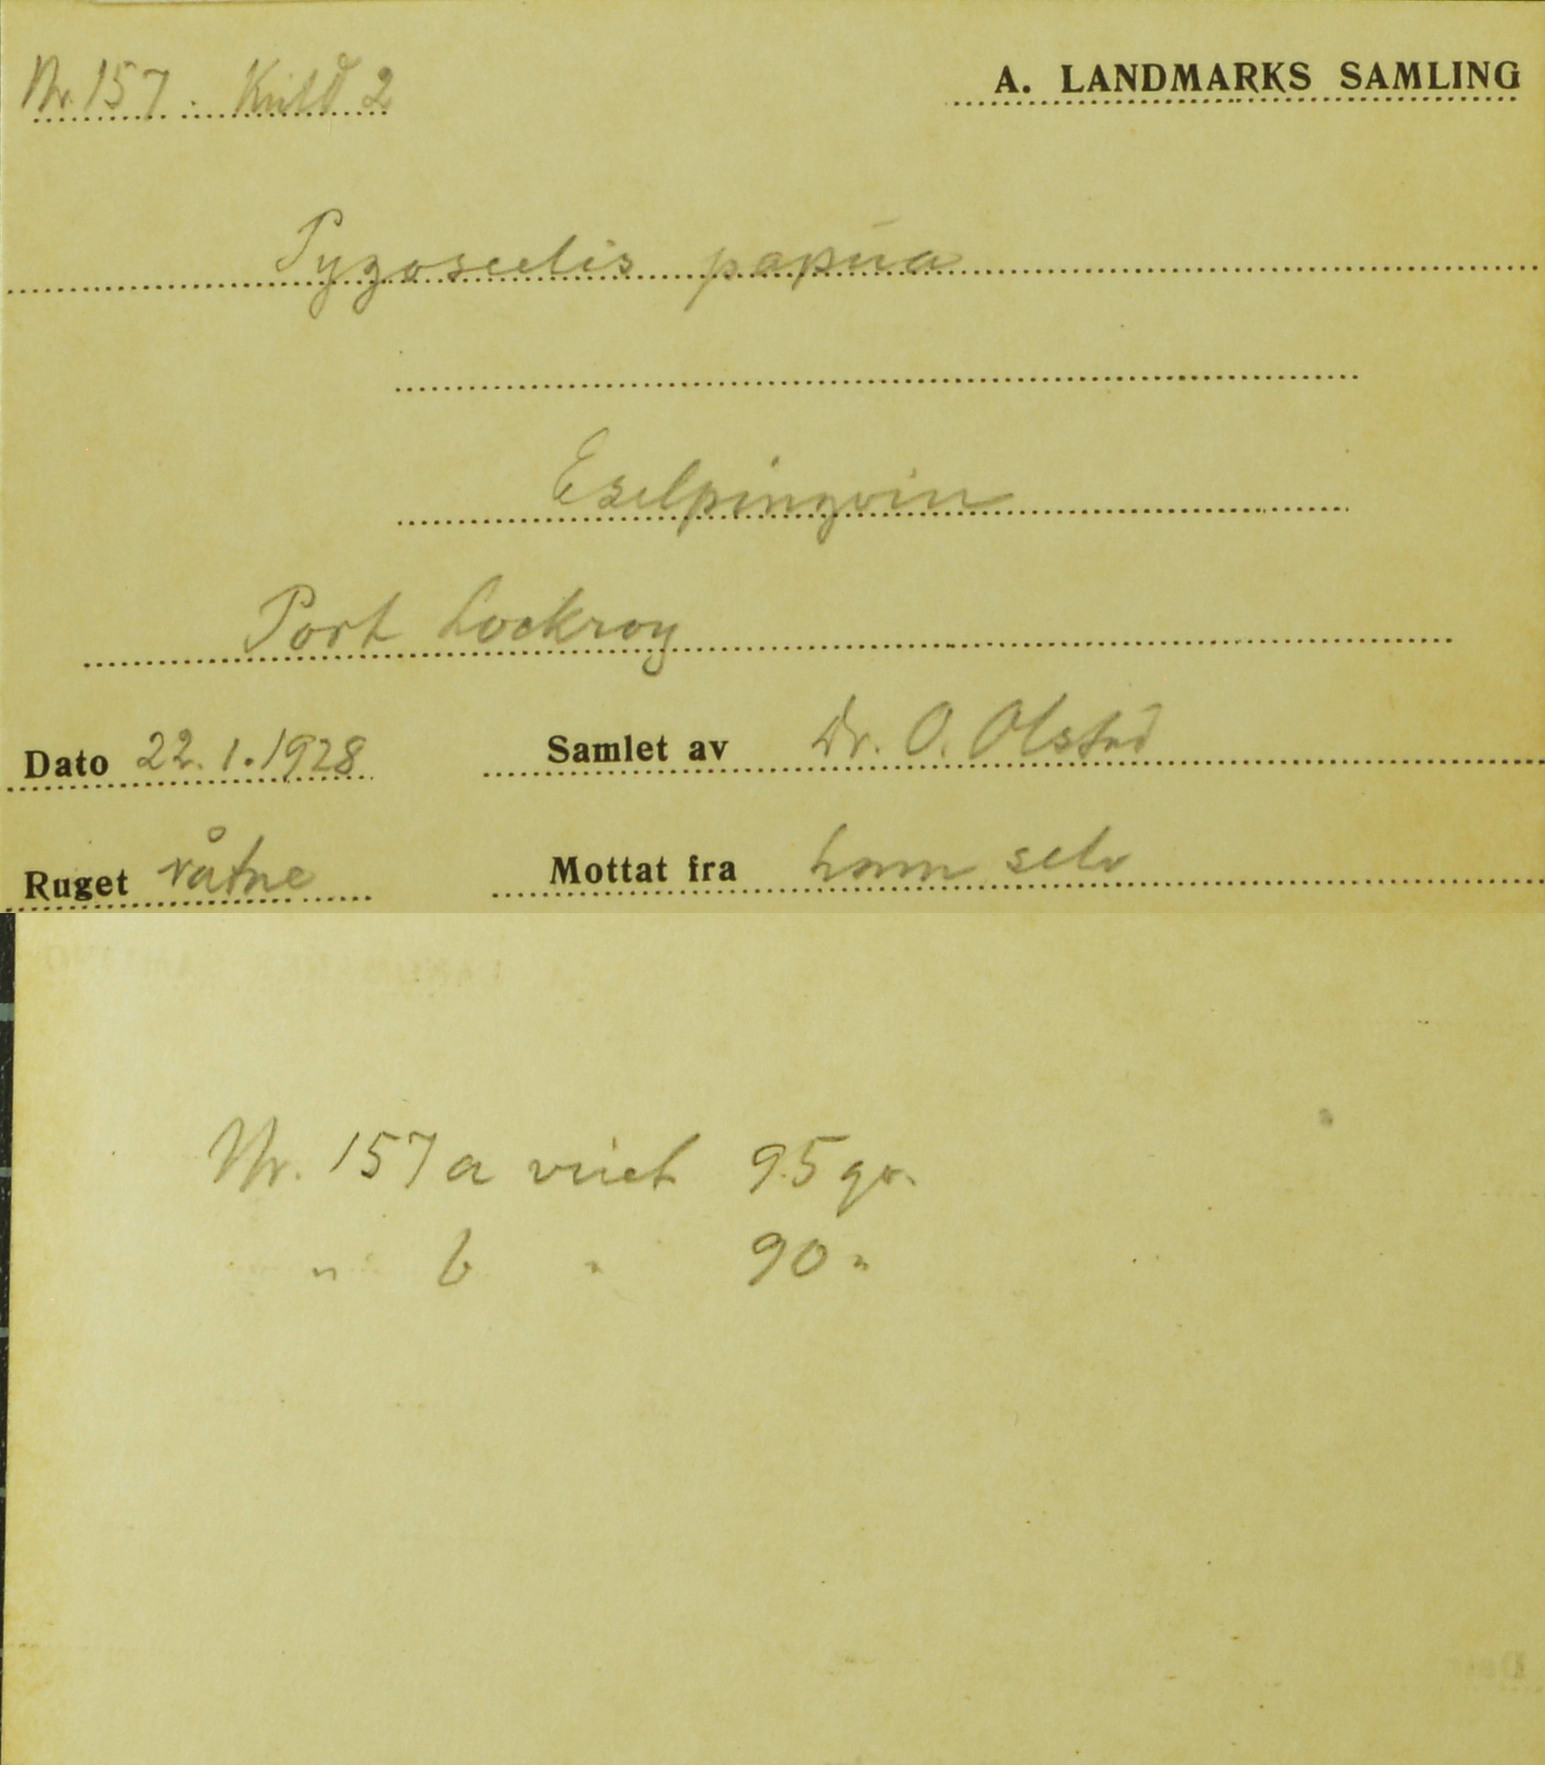 Nr. 157. Kuld 2
A. LANDMARKS SAMLING
Pygoscelis papua
Eselpingvin
Port Lockroy
Dato 22.1.1928 Samlet av Dr. O. Olstad
Ruget råtne Mottat fra ham selv
Nr. 157 a 95 gr.
" b " 90 "